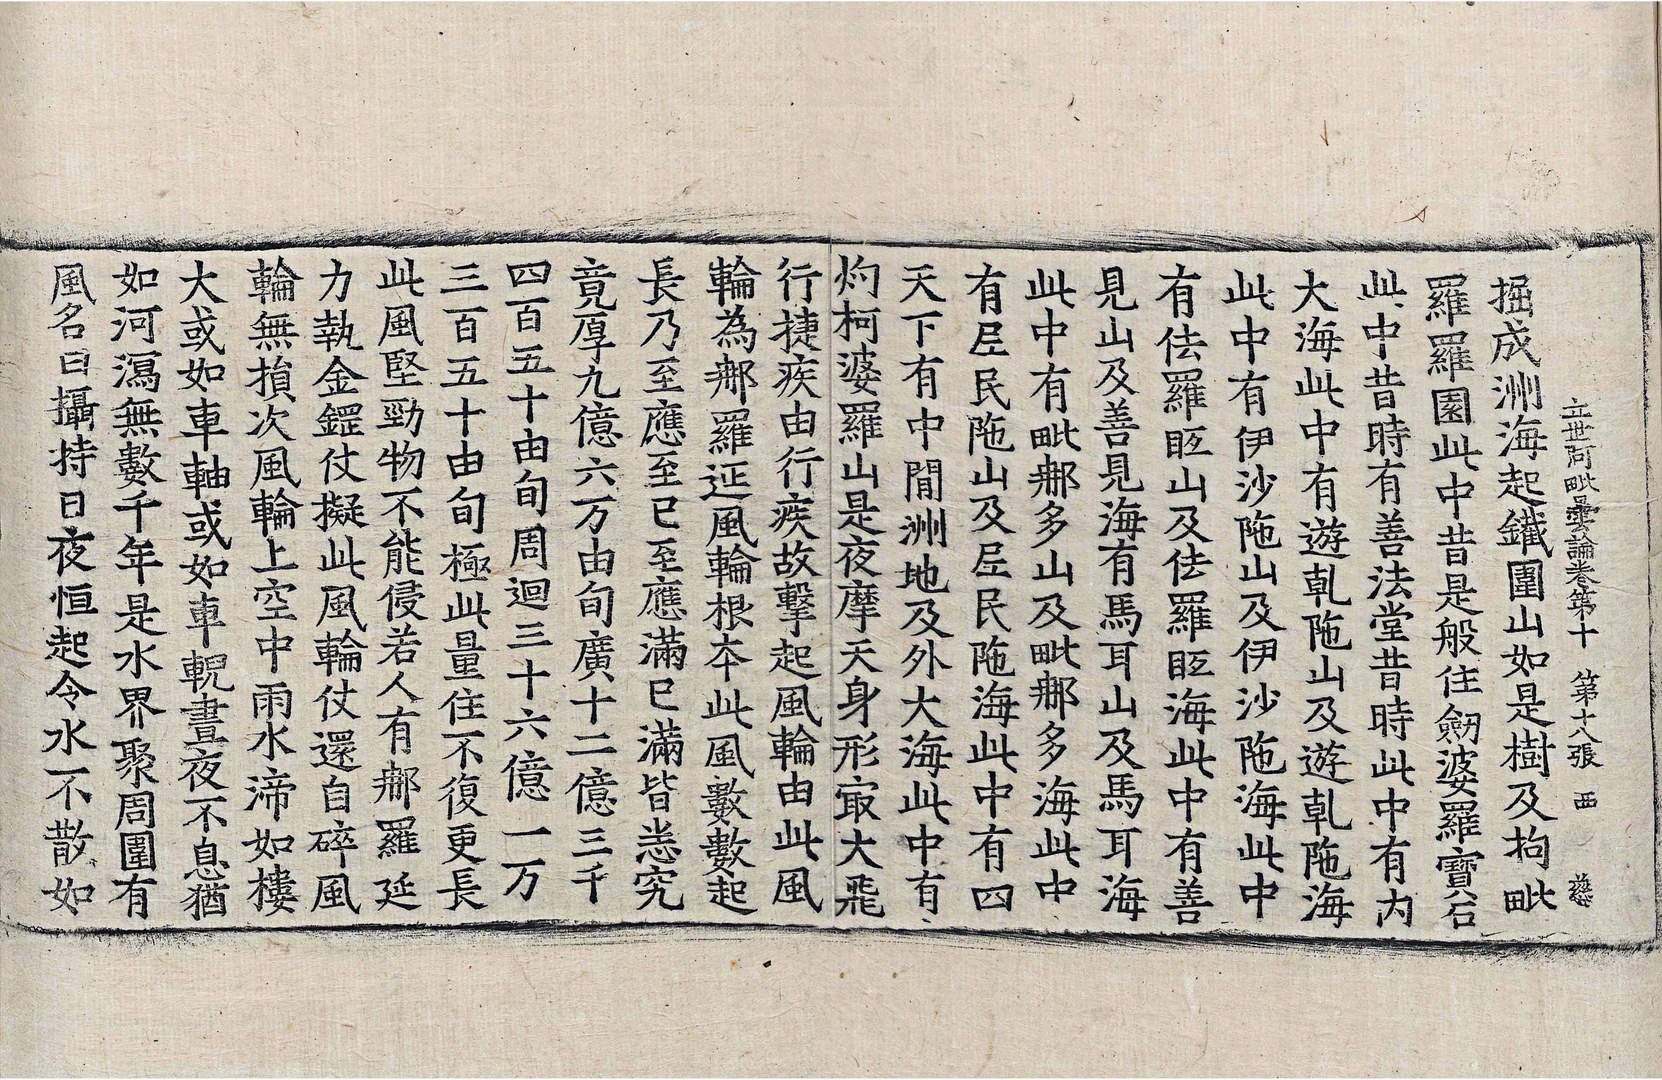 立世阿毗曇論卷第十 第十八張 西
掘成洲海起鐵圍山如是樹及拘毗
羅羅園此中昔是般住劒婆羅寶石
此中昔時有善法堂昔時此中有內
大海此中有遊乹陁山及遊乹陁海
此中有伊沙陁山及伊沙陁海此中
有佉羅眍山及佉羅眍海此中有善
見山及善見海有馬耳山及馬耳海
此中有毗𨙻多山及毗𨙻多海此中
有𡰱民陁山及𡰱民陁海此中有四
天下有中閒洲地及外大海此中有
灼柯婆羅山是夜摩天身形㝡大飛
行捷疾由行疾故擊起風輪由此風
輪為𨙻羅延風輪根夲此風數數起
長乃至應至已至應滿已滿皆悉究
竟厚九億六万由旬廣十二億三千
四百五十由旬周迴三十六億一万
三百五十由旬極此量住不復更長
此風堅勁物不能侵若人有𨙻羅延
力執金鋥仗擬此風輪仗還自碎風
輪無損次風輪上空中雨水渧如樓
大或如車軸或如車輗晝夜不息猶
如河瀉無數千年是水界聚周圍有
風名曰攝持日夜恒起令水不散如